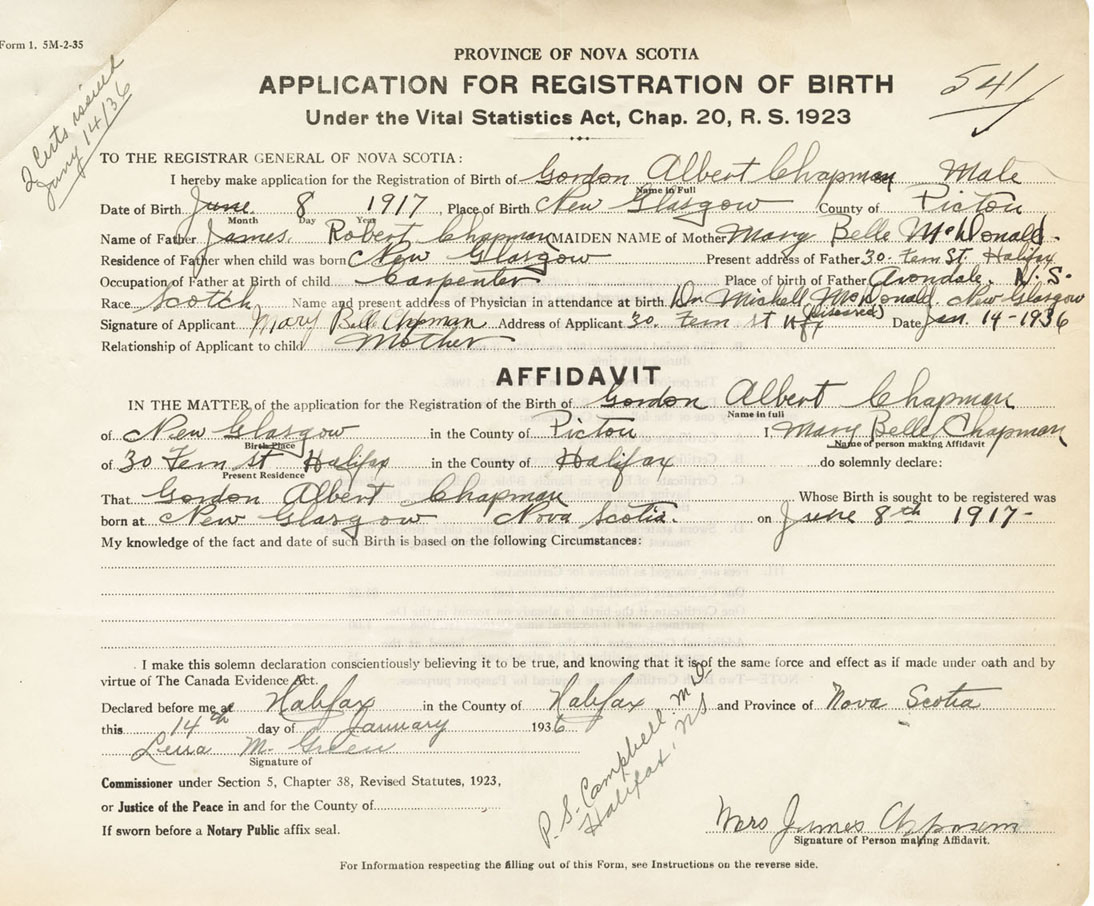 Form 1. 5M-2-35
2 Certs issued
Jany 14/36
PROVINCE OF NOVA SCOTIA
APPLICATION FOR REGISTRATION OF BIRTH
541
Under the Vital Statistics Act, Chap. 20, R. S. 1923
TO THE REGISTRAR GENERAL OF NOVA SCOTIA:
I hereby make application for the Registration of Birth of Gordon Albert Chapman Male
Name in Full
Date of Birth June 8 1917, Place of Birth New Glasgow County of Pictou
Month Day Year
Name of Father James Robert Chapman MAIDEN NAME of Mother Mary Belle McDonald
Residence of Father when child was born New Glasgow Present address of Father 30 Fern St Halifax
Occupation of Father at Birth of child Carpenter Place of birth of Father Avondale N.S.
Race Scotch Name and present address of Physician in attendance at birth Dr. Michell McDonald, New Glasgow
(Diseased)
Signature of Applicant Mary Belle Chapman Address of Applicant 30 Fern st Hfx Date Jan. 14-1936
Relationship of Applicant to child Mother
AFFIDAVIT
IN THE MATTER of the application for the Registration of the Birth of Gordon Albert Chapman
Name in full
of New Glasgow in the County of Pictou I, Mary Belle Chapman
Birth Place Name of person making Affidavit
of 30 Fern st Halifax in the County of Halifax do solemnly declare:
Present Residence
That Gordon Albert Chapman Whose Birth is sought to be registered was
born at New Glasgow Nova Scotia. on June 8th 1917-
My knowledge of the fact and date of such Birth is based on the following Circumstances:
I make this solemn declaration conscientiously believing it to be true, and knowing that it is of the same force and effect as if made under oath and by
virtue of The Canada Evidence Act.
Declared before me at Halifax in the County of Halifax and Province of Nova Scotia
this 14th day of January 1936
Lena M. Green
Signature of
P. S. Campbell M.D.
Halifax, NS
Commissioner under Section 5, Chapter 38, Revised Statutes, 1923,
or Justice of the Peace in and for the County of
If sworn before a Notary Public affix seal.
Mrs James Chapman
Signature of Person making Affidavit.
For Information respecting the filling out of this Form, see Instructions on the reverse side.